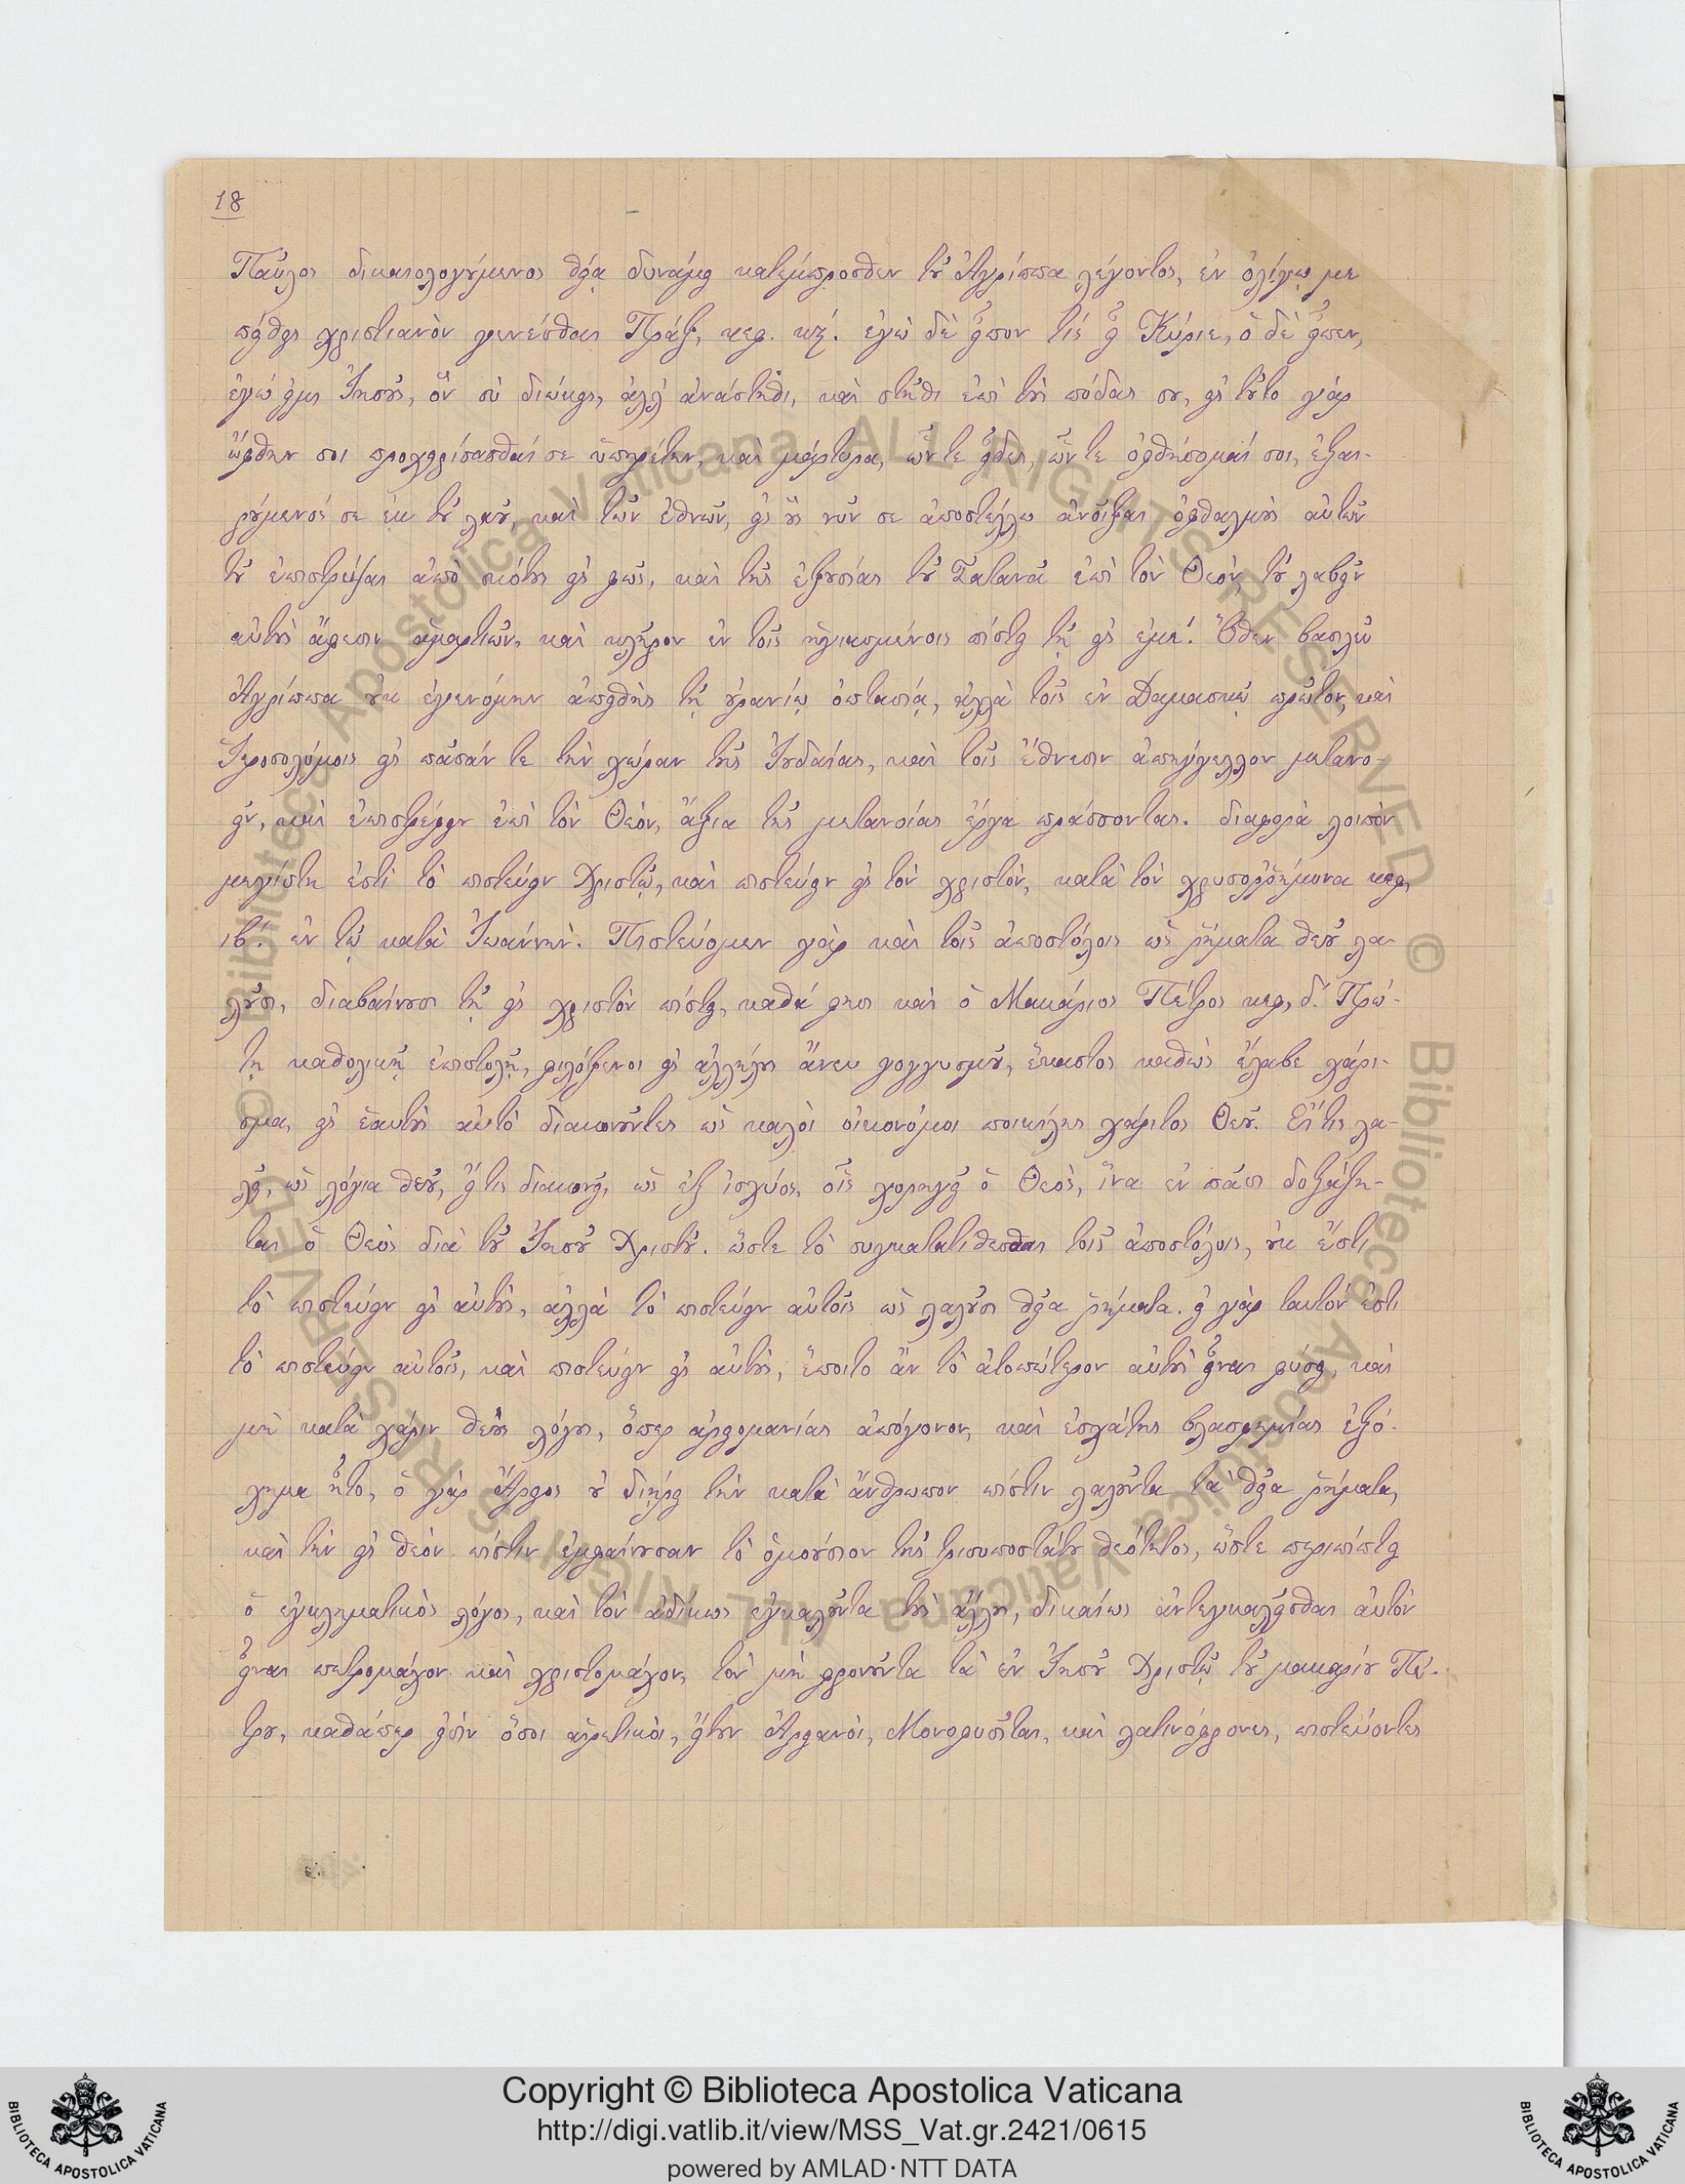 18
Παῦλος δικαιολογούμενος θείᾳ δυνάμει κατεμπροσθεν τοῦ Ἀγρίππα λέγοντος, ἐν ὀλίγῳ με
πείθεις χριστιανὸν γενέσθαι Πράξ, κεφ. κϛ΄. ἐγὼ δὲ εἶπον τίς εἶ Κύριε, ὁ δὲ εἶπεν,
ἐγώ εἰμι Ἰησοῦς, ὃν σὺ διώκεις, ἀλλ' ἀνάστηθι, καὶ στῆθι ἐπὶ τοὺς πόδας σου, εἰς τοῦτο γάρ
ὤφθην σοι προχειρίσασθαί σε ὑπηρέτην, καὶ μάρτυρα, ὧν τε εἶδες, ὧν τε ὀφθήσομαί σοι, ἐξαι-
ρούμενός σε ἐκ τοῦ λαοῦ, καὶ τῶν ἐθνῶν, εἰς οὓς νῦν σε ἀποστέλλω ἀνοῖξαι ὀφθαλμοὺς αὐτῶν
τοῦ ἐπιστρέψαι ἀπὸ σκότους εἰς φῶς, καὶ τῆς ἐξουσίας τοῦ Σατανᾶ ἐπὶ τὸν Θεόν, τοῦ λαβεῖν
αὐτοὺς ἄφεσιν ἁμαρτιῶν, καὶ κλῆρον ἐν τοῖς ἡγιασμένοις πίστει τῇ εἰς ἐμέ! Ὅθεν βασιλεῦ
Ἀγρίππα οὐκ ἐγενόμην ἀπειθὴς τῇ οὐρανίῳ ὀπτασίᾳ, ἀλλὰ τοῖς ἐν Δαμασκῷ πρῶτον, καὶ
Ἱεροσολύμοις εἰς πᾶσάν τε τὴν χώραν τῆς Ἰουδαίας, καὶ τοῖς ἔθνεσιν ἀπήγγελλον μετανο-
εῖν, καὶ ἐπιστρέφειν ἐπὶ τὸν Θεόν, ἄξια τῆς μετανοίας ἔργα πράσσοντας. διαφορὰ λοιπὸν
μεγίστη ἐστὶ τὸ πιστεύειν Χριστῷ, καὶ πιστεύειν εἰς τὸν χριστόν, κατὰ τὸν χρυσοῤῥήμονα κεφ,
ιβ΄. ἐν τῷ κατὰ Ἰωάννην. Πιστεύομεν γὰρ καὶ τοῖς ἀποστόλοις ὡς ῥήματα θεοῦ λα-
λοῦσι, διαβαίνουσι τῇ εἰς χριστὸν πίστει, καθά φησι καὶ ὁ Μακάριος Πέτρος κεφ, δ΄. Πρώ-
τῃ καθολικῇ ἐπιστολῇ, φιλόξενοι εἰς ἀλλήλους ἄνευ γογγυσμοῦ, ἕκαστος καθὼς ἔλαβε χάρι-
σμα, εἰς ἑαυτοὺς αὐτὸ διακονοῦντες ὡς καλοὶ οἰκονόμοι ποικίλης χάριτος Θεοῦ. Εἴ τις λα-
λεῖ, ὡς λόγια θεοῦ, εἴ τις διακονεῖ, ὡς ἐξ ἰσχύος, οἷς χορηγεῖ ὁ Θεὸς, ἵνα ἐν πᾶσι δοξάζη-
ται ὁ Θεὸς διὰ τοῦ Ἰησοῦ Χριστοῦ. ὥστε τὸ συγκατατίθεσθαι τοῖς ἀποστόλοις, οὐκ ἔστι
τὸ πιστεύειν εἰς αὐτούς, ἀλλὰ τὸ πιστεύειν αὐτοῖς ὡς λαλοῦσι θεῖα ῥήματα. εἰ γὰρ ταυτόν ἐστι
τὸ πιστεύειν αὐτοῖς, καὶ πιστεύειν εἰς αὐτούς, ἕποιτο ἂν τὸ ἀτοπώτερον αὐτοὺς εἶναι φύσει, καὶ
μὴ κατὰ χάριν θεοὺς λόγους, ὅπερ ἀρειομανίας ἀπόγονον, καὶ ἐσχάτης βλασφημίας ἐξό-
χημα ἦτο, ὁ γὰρ Ἄρειος οὐ διῄρει τὴν κατὰ ἄνθρωπον πίστιν λαλοῦντα τὰ θεῖα ῥήματα,
καὶ τὴν εἰς θεὸν πίστιν ἐμφαίνουσαν τὸ ὁμοούσιον τῆς τρισυποστάτου θεότητος, ὥστε περιπίπτει
ὁ ἐγκληματικὸς λόγος, καὶ τὸν ἀδίκως ἐγκαλοῦντα τοὺς ἄλλους, δικαίως ἀντεγκαλεῖσθαι αὐτὸν
εἶναι πετρομάχον καὶ χριστομάχον, τὸν μὴ φρονοῦντα τὰ ἐν Ἰησοῦ Χριστῷ τοῦ μακαρίου Πέ-
τρου, καθάπερ εἰσὶν ὅσοι αἱρετικοὶ, εἴτουν Ἀρειανοὶ, Μονοφυσῖται, καὶ λατινόφρονες, πιστεύοντες
Copyright © Biblioteca Apostolica Vaticana
http://digi.vatlib.it/view/MSS_Vat.gr.2421/0615
powered by AMLAD·NTT DATA